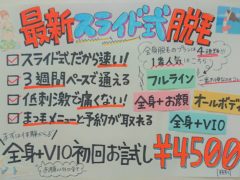 最新スライド式脱毛
スライド式だから速い!
3週間ペースで通える
低刺激で痛くない!
全身脱毛のプランは4種類!!
1番人気はこちら
フルライン
全身+お顔
オールボディ
全身+VIO
全身+VIO初回お試し
¥4500